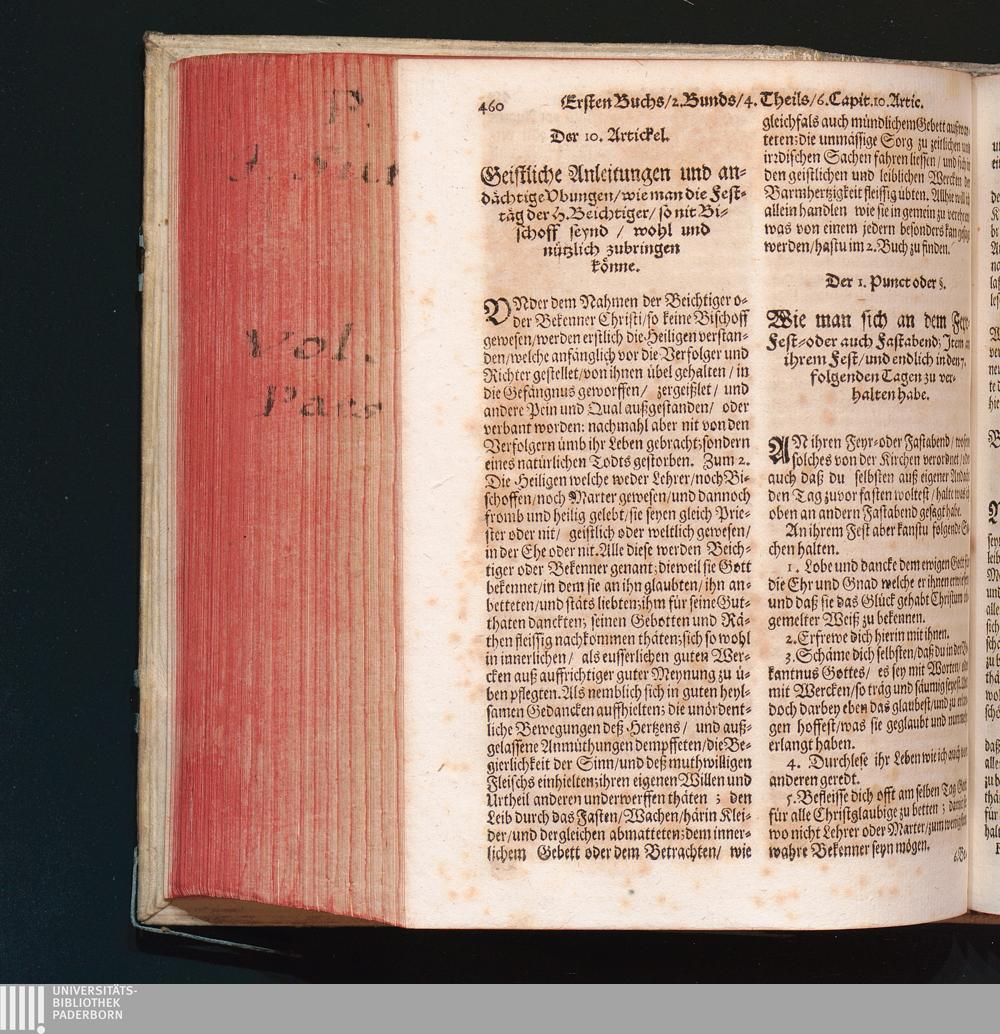 460
Ersten Buchs/2. Bunds/4. Theils/6. Capit. 10. Artic.
Der 10. Artickel.
Geistliche Anleitungen und an-
dächtige Vbungen/wie man die Fest-
täg der H. Beichtiger/so nit Bi-
schoff seynd / wohl und
nützlich zubringen
könne.
VNder dem Nahmen der Beichtiger o-
der Bekenner Christi/so keine Bischoff
gewesen/werden erstlich die Heiligen verstan-
den/welche anfänglich vor die Verfolger und
Richter gestellet/von ihnen übel gehalten/ in
die Gefängnus geworffen/ zergeißlet/ und
andere Pein und Qual außgestanden/ oder
verbant worden: nachmahl aber nit von den
Verfolgern ümb ihr Leben gebracht; sondern
eines natürlichen Todts gestorben. Zum 2.
Die Heiligen welche weder Lehrer/noch Bi-
schoffen/noch Marter gewesen/und dannoch
fromb und heilig gelebt/sie seyen gleich Prie-
ster oder nit/ geistlich oder weltlich gewesen/
in der Ehe oder nit. Alle diese werden Beich-
tiger oder Bekenner genant; dieweil sie Gott
bekennet/in dem sie an ihn glaubten/ ihn an-
betteten/und stäts liebten; ihm für seine Gut-
thaten danckten; seinen Gebotten und Rä-
then fleissig nachkommen thäten; sich so wohl
in innerlichen/ als eusserlichen guten Wer-
cken auß auffrichtiger guter Meynung zu ü-
ben pflegten. Als nemblich sich in guten heyl-
samen Gedancken auffhielten; die unordent-
liche Bewegungen deß Hertzens/ und auß-
gelassene Anmüthungen dempffeten/die Be-
gierlichkeit der Sinn/und deß muthwilligen
Fleischs einhielten; ihren eigenen Willen und
Urtheil anderen underwerffen thäten ; den
Leib durch das Fasten/Wachen/härin Klei-
der/und dergleichen abmatteten; dem inner-
lichem Gebett oder dem Betrachten/ wie
gleichfals auch mündlichem Gebett
teten; die unmässige Sorg zu zeitlichen und
irrdischen Sachen fahren liessen/ und sich in
den geistlichen und leiblichen Wercken der
Barmhertzigkeit fleissig übten. Allhie will ich
allein handlen wie sie in gemein zu verehren
was von einem jedern besonders kan gesagt
werden/hastu im 2. Buch zu finden.
Der 1. Punct oder §.
Wie man sich an dem Feyr-
Fest-oder auch Fastabend; Item an
ihrem Fest/und endlich in den 7.
folgenden Tagen zu ver-
halten habe.
AN ihren Feyr-oder Fastabend/
solches von der Kirchen verordnet/
auch daß du selbsten auß eigener Andacht
den Tag zuvor fasten woltest/halte was ich
oben an andern Fastabend gesagt habe.
An ihrem Fest aber kanstu folgende Sa-
chen halten.
1. Lobe und dancke dem ewigen Gott für
die Ehr und Gnad welche er ihnen erwiesen
und daß sie das Glück gehabt Christum
gemelter Weiß zu bekennen.
2. Erfrewe dich hierin mit ihnen.
3. Schäme dich selbsten/daß du in der
kantnus Gottes/ es sey mit Worten/
mit Wercken/so träg und säumig seyest.
doch darbey eben das glaubest/und zu
gen hoffest/was sie geglaubt und nunmehr
erlangt haben.
4. Durchlese ihr Leben wie ich auch von
anderen geredt.
5. Befleisse dich offt am selben Tag Gott
für alle Christglaubige zu betten ;
wo nicht Lehrer oder Marter/zum wenigsten
wahre Bekenner seyn mögen.
P.
vol.
Pars
UNIVERSITÄTS-
BIBLIOTHEK
PADERBORN